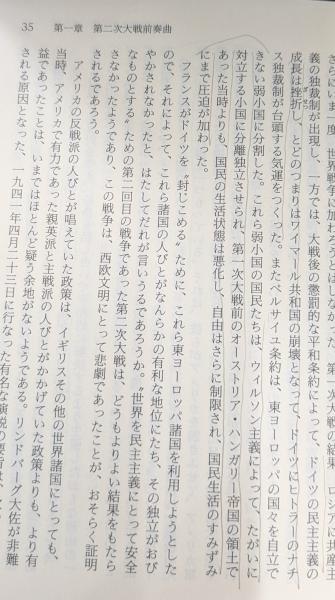 35　第一章　第二次大戦前奏曲
さらにいま一度、世界戦争に加わろうとは
義の独裁制が出現し、一方では、大戦後の懲罰的な平和条約によって、ドイツの民主主義の
成長は挫折し、とどのつまりはワイマール共和国の崩壊となって、ドイツにヒトラーのナチ
ス独裁制が台頭する気運をつくった。またベルサイユ条約は、東ヨーロッパの国々を自立で
きない弱小国に分割した。これら弱小国の国民たちは、ウィルソン主義によって、たがいに
対立する小国に分離独立させられ、第一次大戦前のオーストリア・ハンガリー帝国の領土で
あった当時よりも、国民の生活状態は悪化し、自由はさらに制限され、国民生活のすみずみ
に圧迫が加わった。
フランスがドイツを〝封じこめる〟ために、これら東ヨーロッパ諸国を利用しようとした
ので、それによって、これら諸国の人びとがなんらかの有利な地位にたち、その独立がおび
やかされなかったと、はたしてだれが言いうるであろうか。〝世界を民主主義にとって安全
なものとする〟ための第二回目の戦争であった第二次大戦は、どうもよりよい結果をもたら
さなかったようであり、この戦争は、西欧文明にとって悲劇であったことが、おそらく証明
されるであろう。
アメリカの反戦派の人びとが唱えていた政策は、イギリスその他の世界諸国にとっても、
当時、アメリカで有力であった親英派と主戦派の人びとがかかげていた政策よりも、より有
益であったことは、いまではほとんど疑う余地がないようである。リンドバーグ大佐が非難
される原因となった、一九四一年四月二十三日に行なった有名な演説の要旨は、